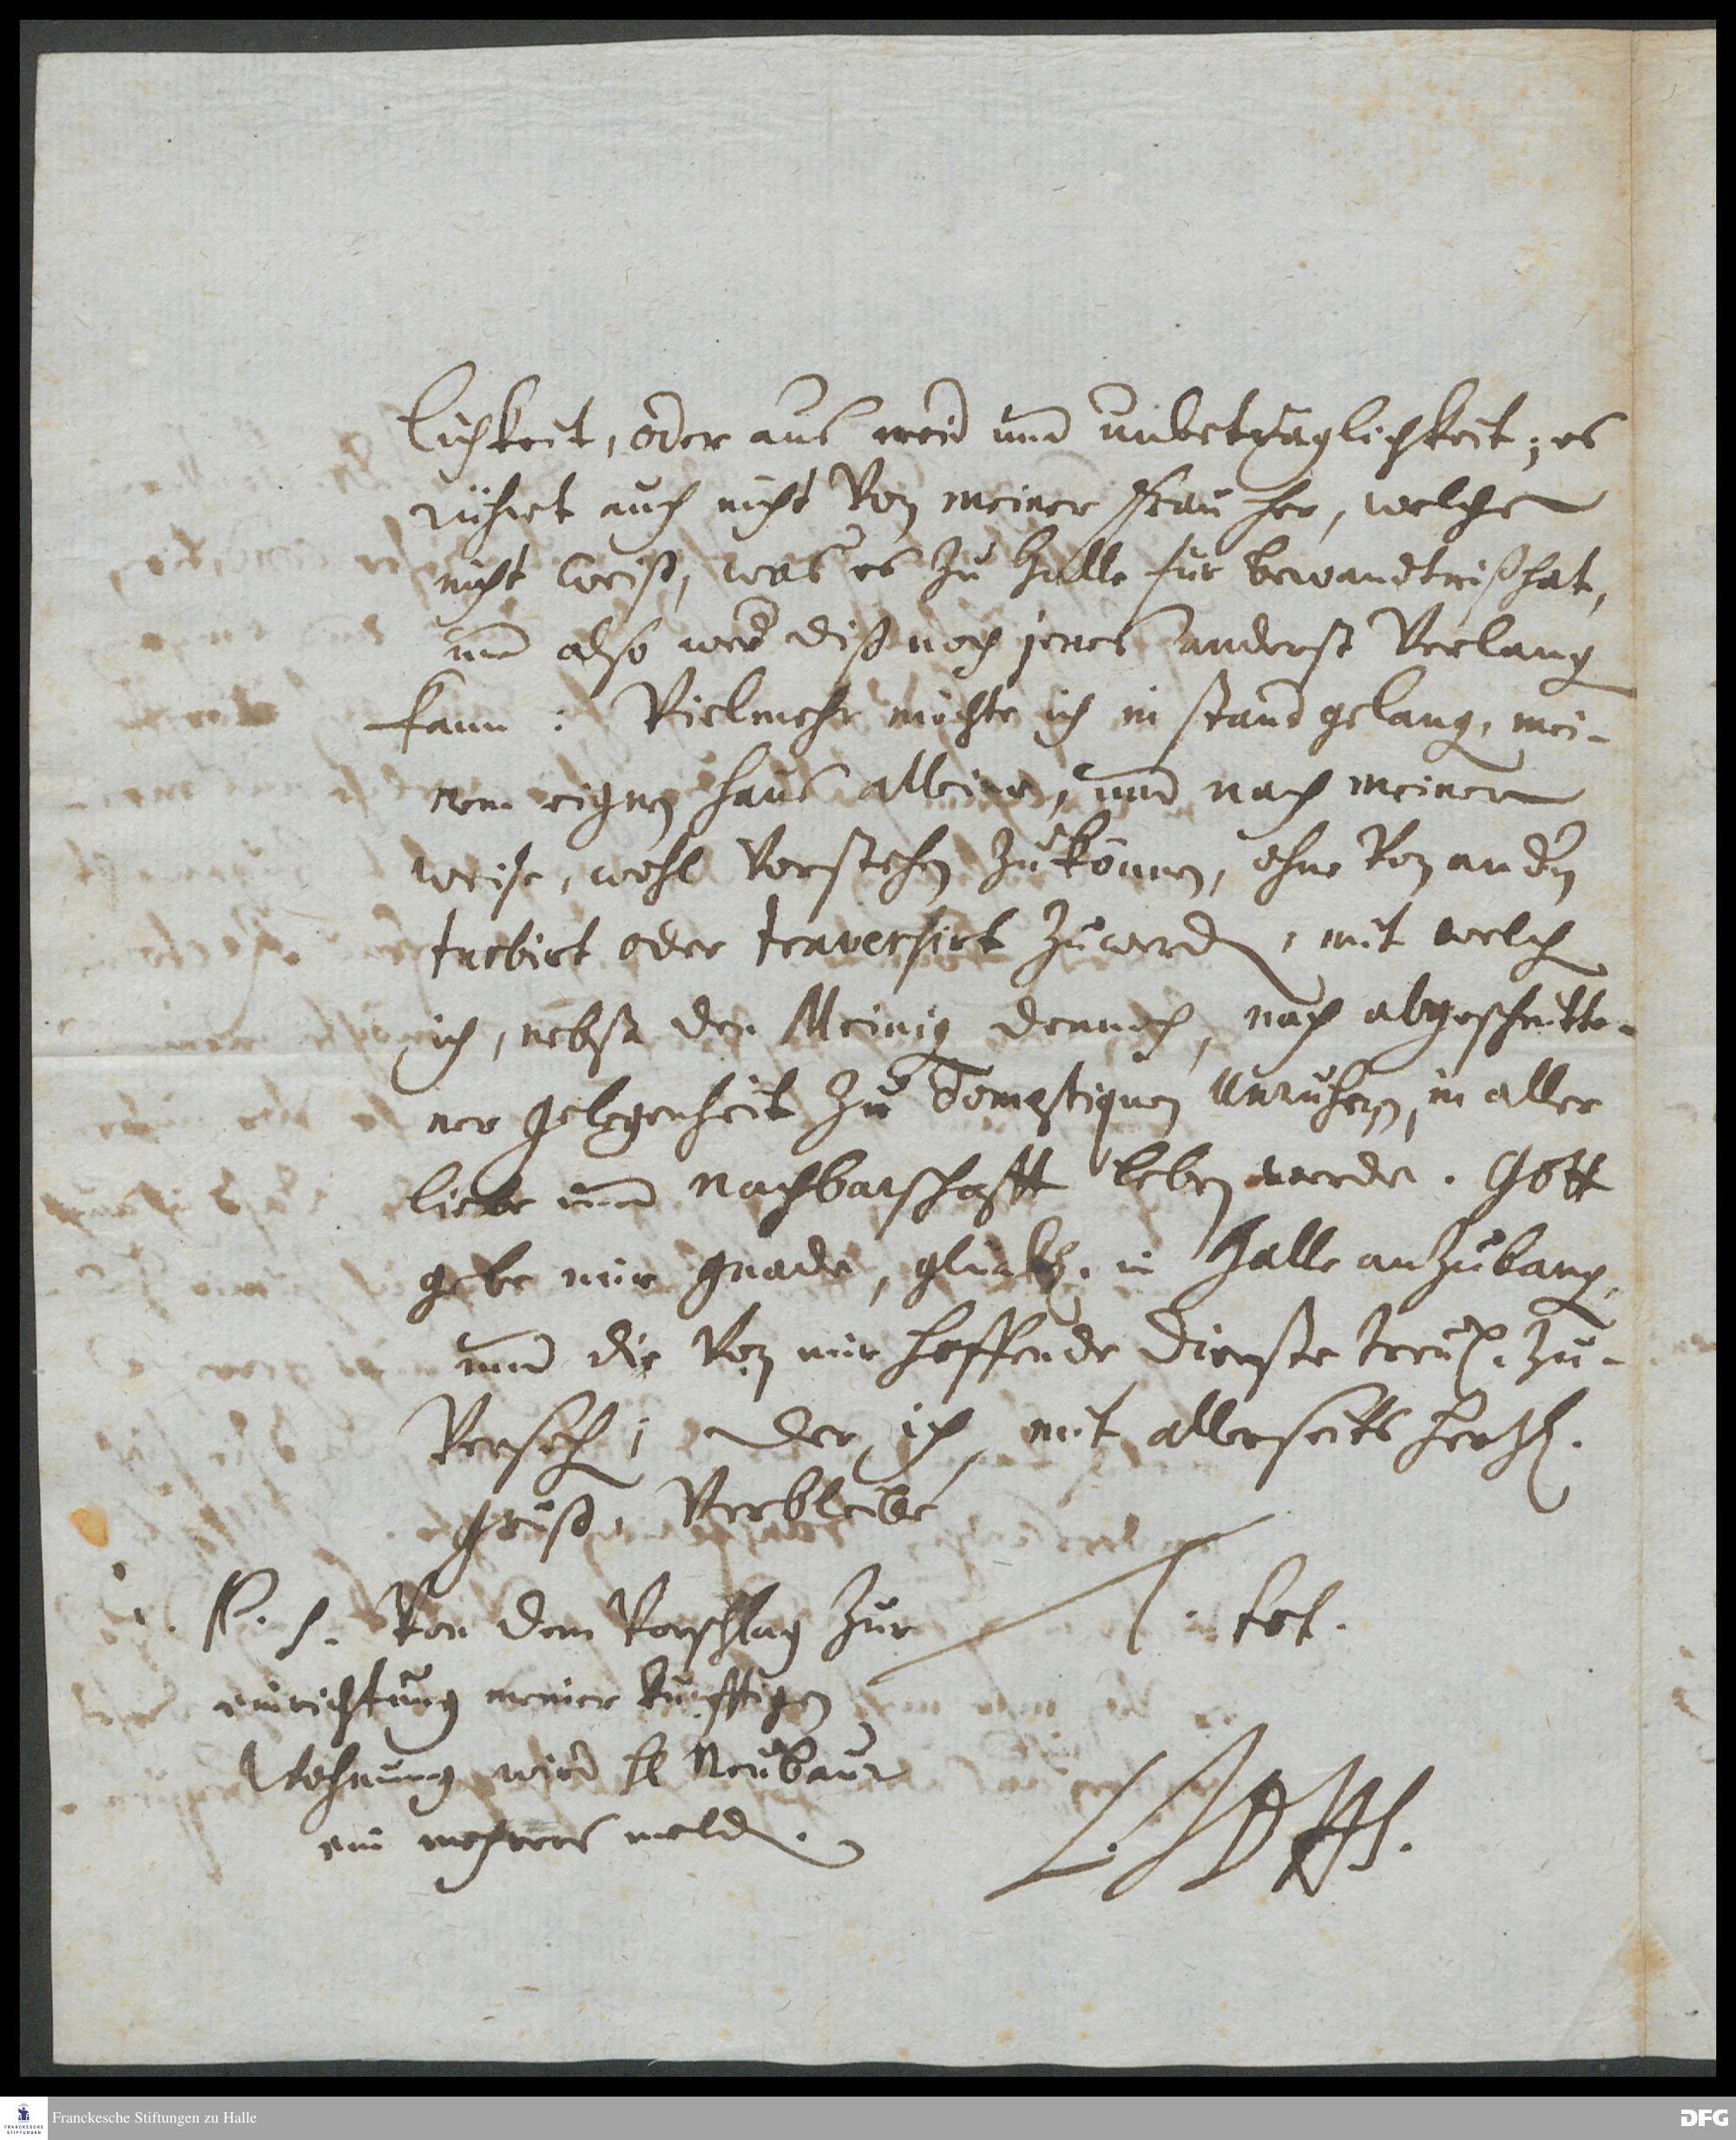 lichkeit, oder aus neid und unbetraglichkeit; es
rühret auch nicht Von meiner Frau her, welche
nicht weiß, was es zu Halle für bewandtniß hat,
und also wed diß noch jenes anderst Verlang
kann: Vielmehr möchte ich in stand gelang, mei-
nem eignen Haus alleine, und nach meiner
weise, wohl Vorstehen zu können, ohne Von andn
turbirt oder traversirt zu werden, mit welch
ich, nebst den Meinig dennoch, nach abgeschnitte-
ner gelegenheit zu Domestiquen Unruhen, in aller
liebe und Nachbarschafft leben werde. Gott
gebe mir gnade, glückl. in Halle anzulang,
und die Von mir hoffende Dienste treul. zu-
Verseh; der ich, mit allerseits hertzl.
Gruß, Verbleibe
T. tot.
P. S. Von dem Vorschlag zur
einrichtung meiner künfftigen
Wohnung wird H Neubaur
ein mehrers melden.
Franckesche Stiftungen zu Halle
FRANCKESCHE
STIFTUNGEN
DFG